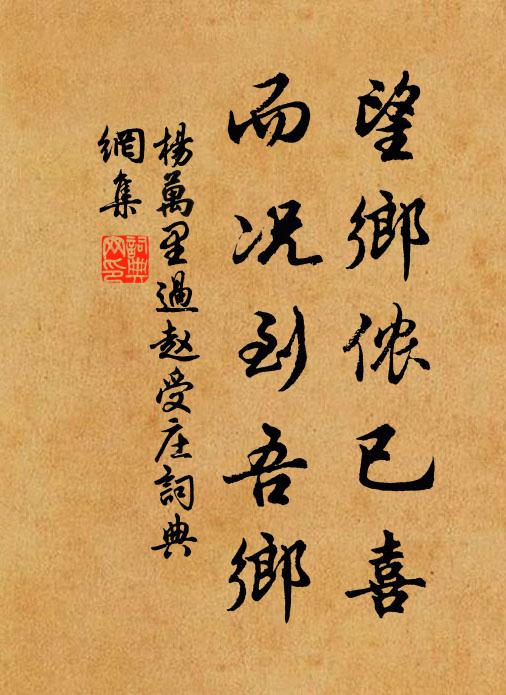 望鄉侬已喜
而况到吾鄉
楊萬里過赵受庄詞典
網集
詞典
网印